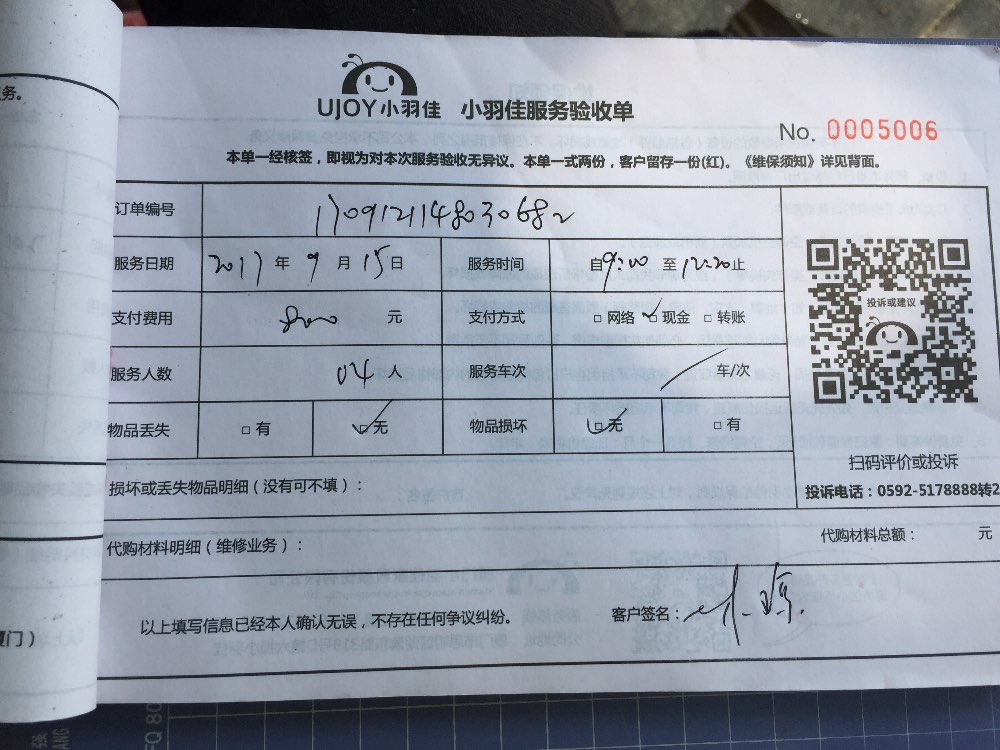 务。
UJOY小羽佳 小羽佳服务验收单
No. 0005006
本单一经核签，即视为对本次服务验收无异议。本单一式两份，客户留存一份(红)。《维保须知》详见背面。
订单编号 1709121148030682
服务日期 2017 年 9 月 15 日 服务时间 自9:00 至12:20止
支付费用 元 支付方式 □ 网络 □ 现金 □ 转账
服务人数 04 人 服务车次 车/次
物品丢失 □ 有 □ 无 物品损坏 □ 无 □ 有
投诉或建议
扫码评价或投诉
投诉电话：0592-5178888转2
损坏或丢失物品明细（没有可不填）：
代购材料明细（维修业务）： 代购材料总额： 元
以上填写信息已经本人确认无误，不存在任何争议纠纷。 客户签名：
厦门）